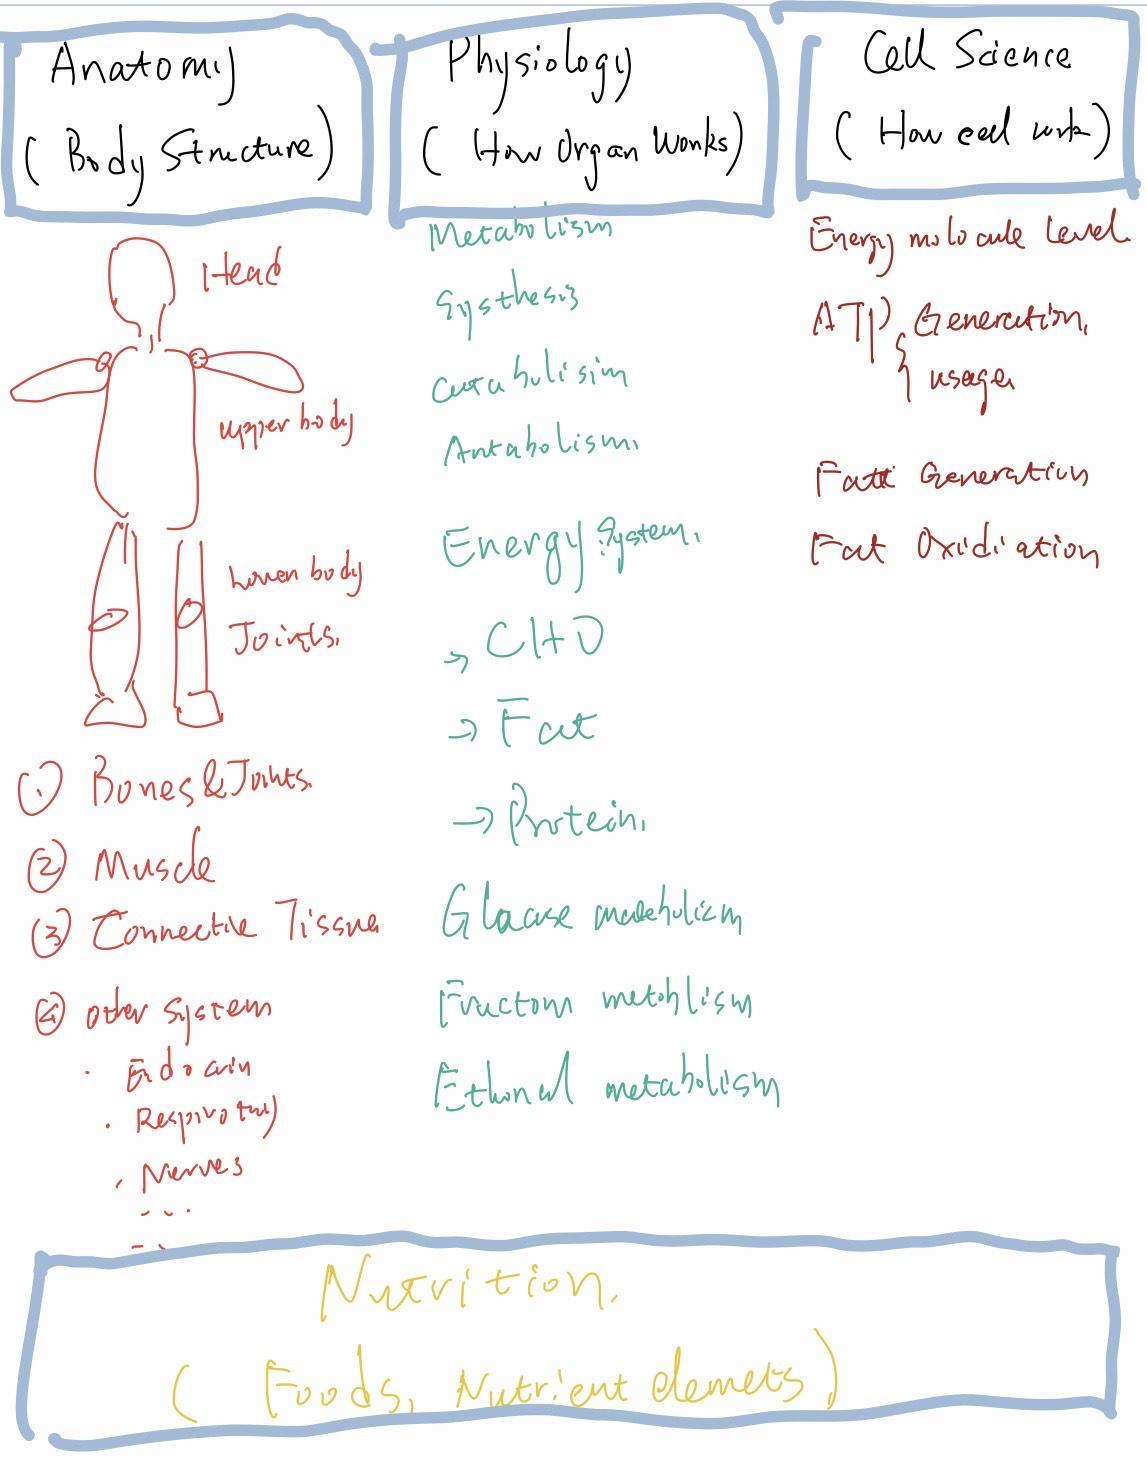 Anatomy
( Body Structure )
Head
upper body
Lower body
Joints.
① Bones & Joints.
② Muscle
③ Connective Tissue
④ other system
· Endocrin
· Respirotary
· Nerves
...
Physiology
( How Organ Works )
Metabolism
Systhesis
Catabolisim
Antabolism.
Energy System.
→ CHO
→ Fat
→ Protein.
metabolism
metoblism
metabolism
Cell Science
( How cell work )
Energy molocule level.
ATP { Generation,
usage,
Generation
Fat Oxidiation
Nutrition.
( Foods, Nutrient elemets )